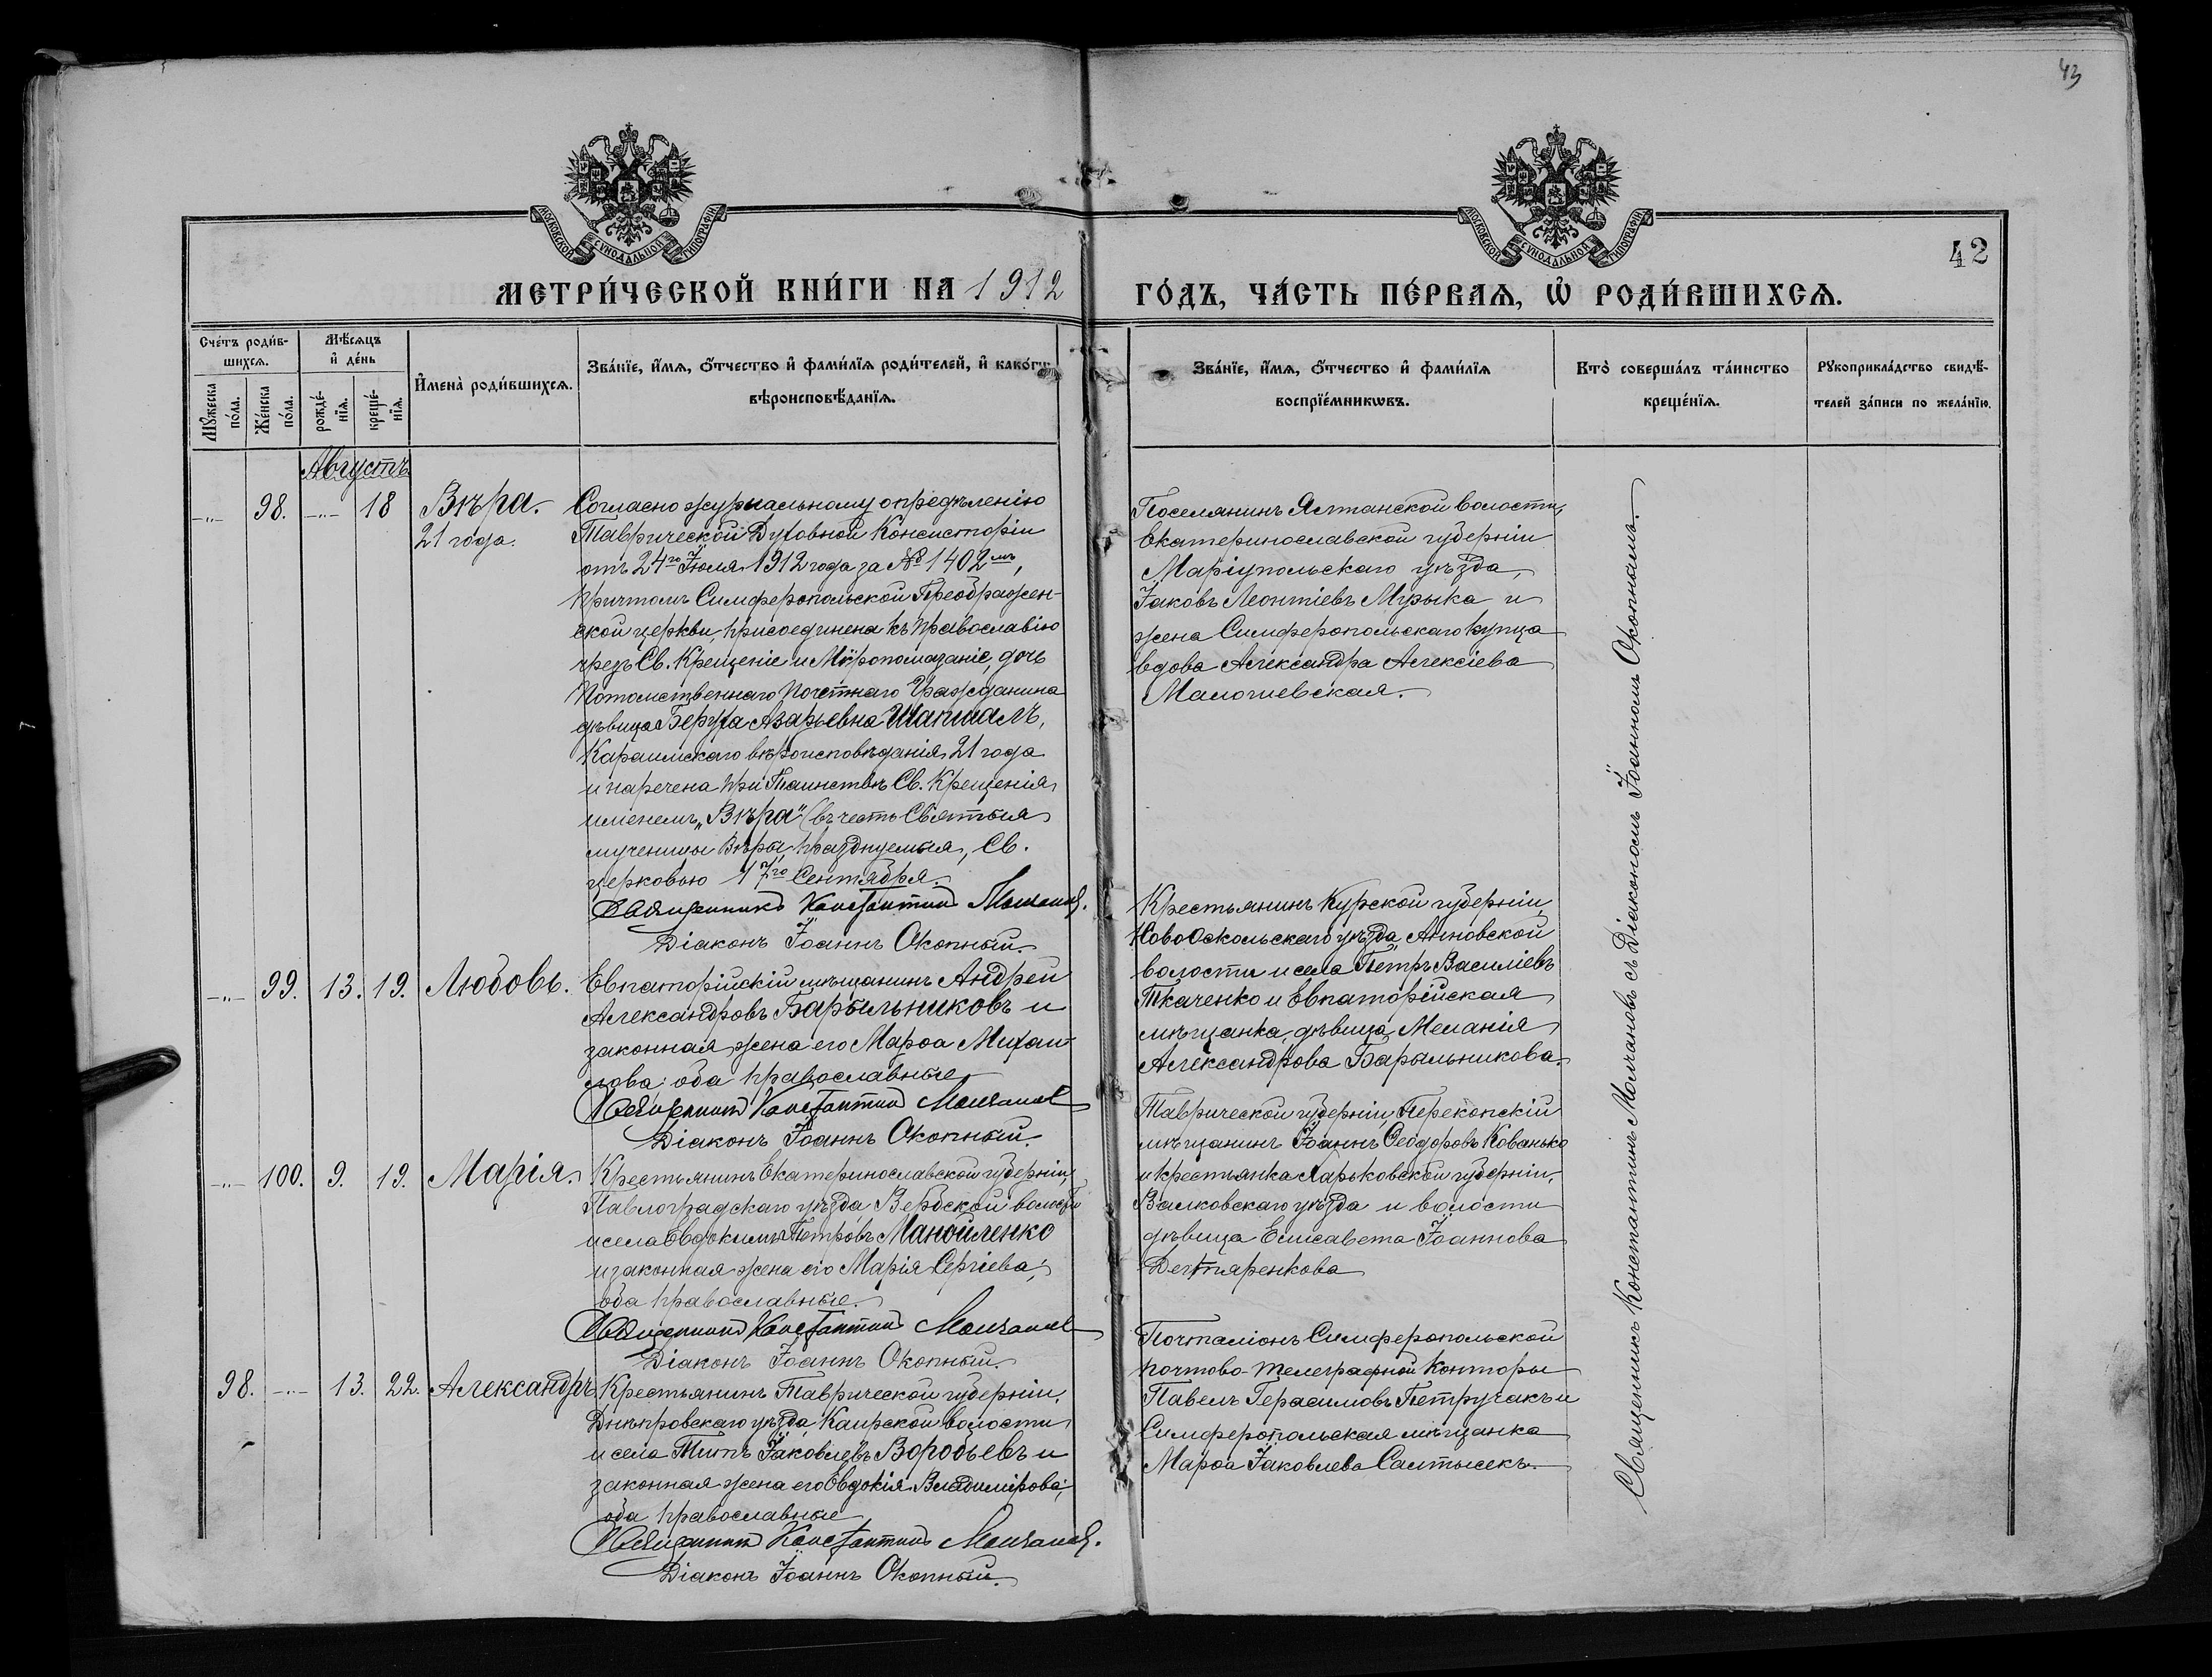 43
МОСКОВСКОЙ СУНОДАЛЬНОЙ ТИПОГРАФІИ
МОСКОВСКОЙ СУНОДАЛЬНОЙ ТИПОГРАФІИ
42
МЕТРИ́ЧЕСКОЙ КНИ́ГИ НА 1912
ГО́ДЪ, ЧА́СТЬ ПЕ́РВАѦ, Ѡ҆ РОДИ́ВШИХСѦ.
Сче́тъ роди́в-
шихсѧ.
Мѣ́сѧцъ
и҆ де́нь
Мꙋ́жеска
по́ла.
Же́нска
по́ла.
рожде́-
нїѧ.
креще́-
нїѧ.
И҆мена̀ роди́вшихсѧ.
Зва́нїе, и҆́мѧ, ѻ҆́тчество и҆ фами́лїѧ роди́телей, и҆ како́гѡ
вѣроисповѣ́данїѧ.
Зва́нїе, и҆́мѧ, ѻ҆́тчество и҆ фами́лїѧ
воспрїе́мникѡвъ.
Кто̀ соверша́лъ та́инство
креще́нїѧ.
Рꙋкоприкла́дство свидѣ́-
телей за́писи по жела́нїю.
Августъ
-"- 98. -"- 18 Вѣра.
21 года.
Согласно журнальному опредѣленію
Таврической Духовной Консисторіи
отъ 24го Іюля 1912 года за № 1402мъ,
причтомъ Симферопольской Преображен-
ской церкви, присоединена къ Православію
чрезъ Св. Крещеніе и Мѵропомазаніе, дочь
Потомственнаго Почетнаго Гражданина
дѣвица Беруха Азарьевна Шапшалъ,
Караимскаго вѣроисповѣданія 21 года
и наречена при Таинствѣ Св. Крещенія
именемъ „Вѣра" (въ честь Святыя
мученицы Вѣры, празднуемыя, Св.
церковью 17го Сентября.
Священникъ Константинъ Молчановъ.
Діаконъ Іоаннъ Окопный.
Поселянинъ Ялтанской волости,
Екатеринославской губерніи
Маріупольскаго уѣзда,
Іаковъ Леонтіевъ Музыка и
жена Симферопольскаго купца
вдова Александра Алексіева
-"- 99. 13. 19. Любовь.
Евпаторійскій мѣщанинъ Андрей
Александровъ Барыльниковъ и
законная жена его Марѳа Михаи-
лова: оба православные
Священникъ Константинъ Молчановъ
Діаконъ Іоаннъ Окопный.
Крестьянинъ Курской губерніи,
НовоОскольскаго уѣзда, Анновской
волости и села Петръ Василіевъ
Ткаченко и Евпаторійская
мѣщанка, дѣвица, Меланія
Александрова Барыльникова.
-"- 100. 9. 19. Марія.
Крестьянинъ Екатеринославской губерніи,
Павлоградскаго уѣзда Вербской волости
и села Евдокимъ Петровъ Манойленко
и законная жена его Марія Сергіева;
оба православные.
Священникъ Константинъ Молчановъ
Діаконъ Іоаннъ Окопный.
Таврической губерніи, Перекопскій
мѣщанинъ Іоаннъ Ѳеодоровъ Кованько
и крестьянка Харьковской губерніи,
Валковскаго уѣзда и волости
дѣвица Елисавета Іоаннова
Дегтяренкова
98. -"- 13. 22. Александръ
Крестьянинъ Таврической губерніи,
Днѣпровскаго уѣзда, Каирской волости
и села Титъ Іаковлевъ Воробьевъ и
законная жена его Евдокія Владимірова;
оба православные
Священникъ Константинъ Молчановъ.
Діаконъ Іоаннъ Окопный.
Почталіонъ Симферопольской
почтово-телеграфной Конторы
Павелъ Герасимовъ Петручакъ и
Симферопольская мѣщанка
Марѳа Іаковлева Салтысекъ.
Священникъ Константинъ Молчановъ съ Діакономъ Іоанномъ Окопнымъ.